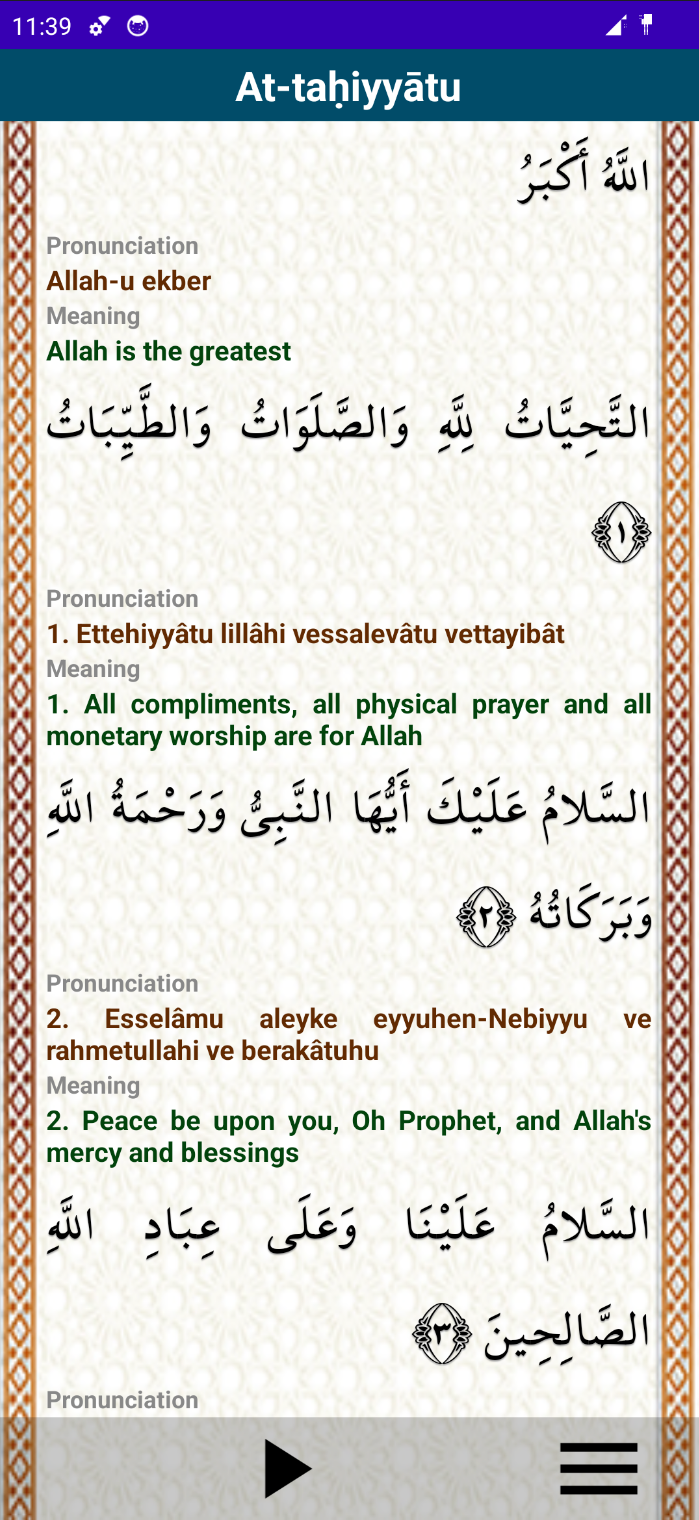 11:39
At-taḥiyyātu
اللَّهُ أَكْبَرُ
Pronunciation
Allah-u ekber
Meaning
Allah is the greatest
التَّحِيَّاتُ لِلَّهِ وَالصَّلَوَاتُ وَالطَّيِّبَاتُ
﴿١﴾
Pronunciation
1. Ettehiyyâtu lillâhi vessalevâtu vettayibât
Meaning
1. All compliments, all physical prayer and all
monetary worship are for Allah
السَّلامُ عَلَيْكَ أَيُّهَا النَّبِىُّ وَرَحْمَةُ اللَّهِ
وَبَرَكَاتُهُ ﴿٢﴾
Pronunciation
2. Esselâmu aleyke eyyuhen-Nebiyyu ve
rahmetullahi ve berakâtuhu
Meaning
2. Peace be upon you, Oh Prophet, and Allah's
mercy and blessings
السَّلامُ عَلَيْنَا وَعَلَى عِبَادِ اللَّهِ
الصَّالِحِينَ ﴿٣﴾
Pronunciation